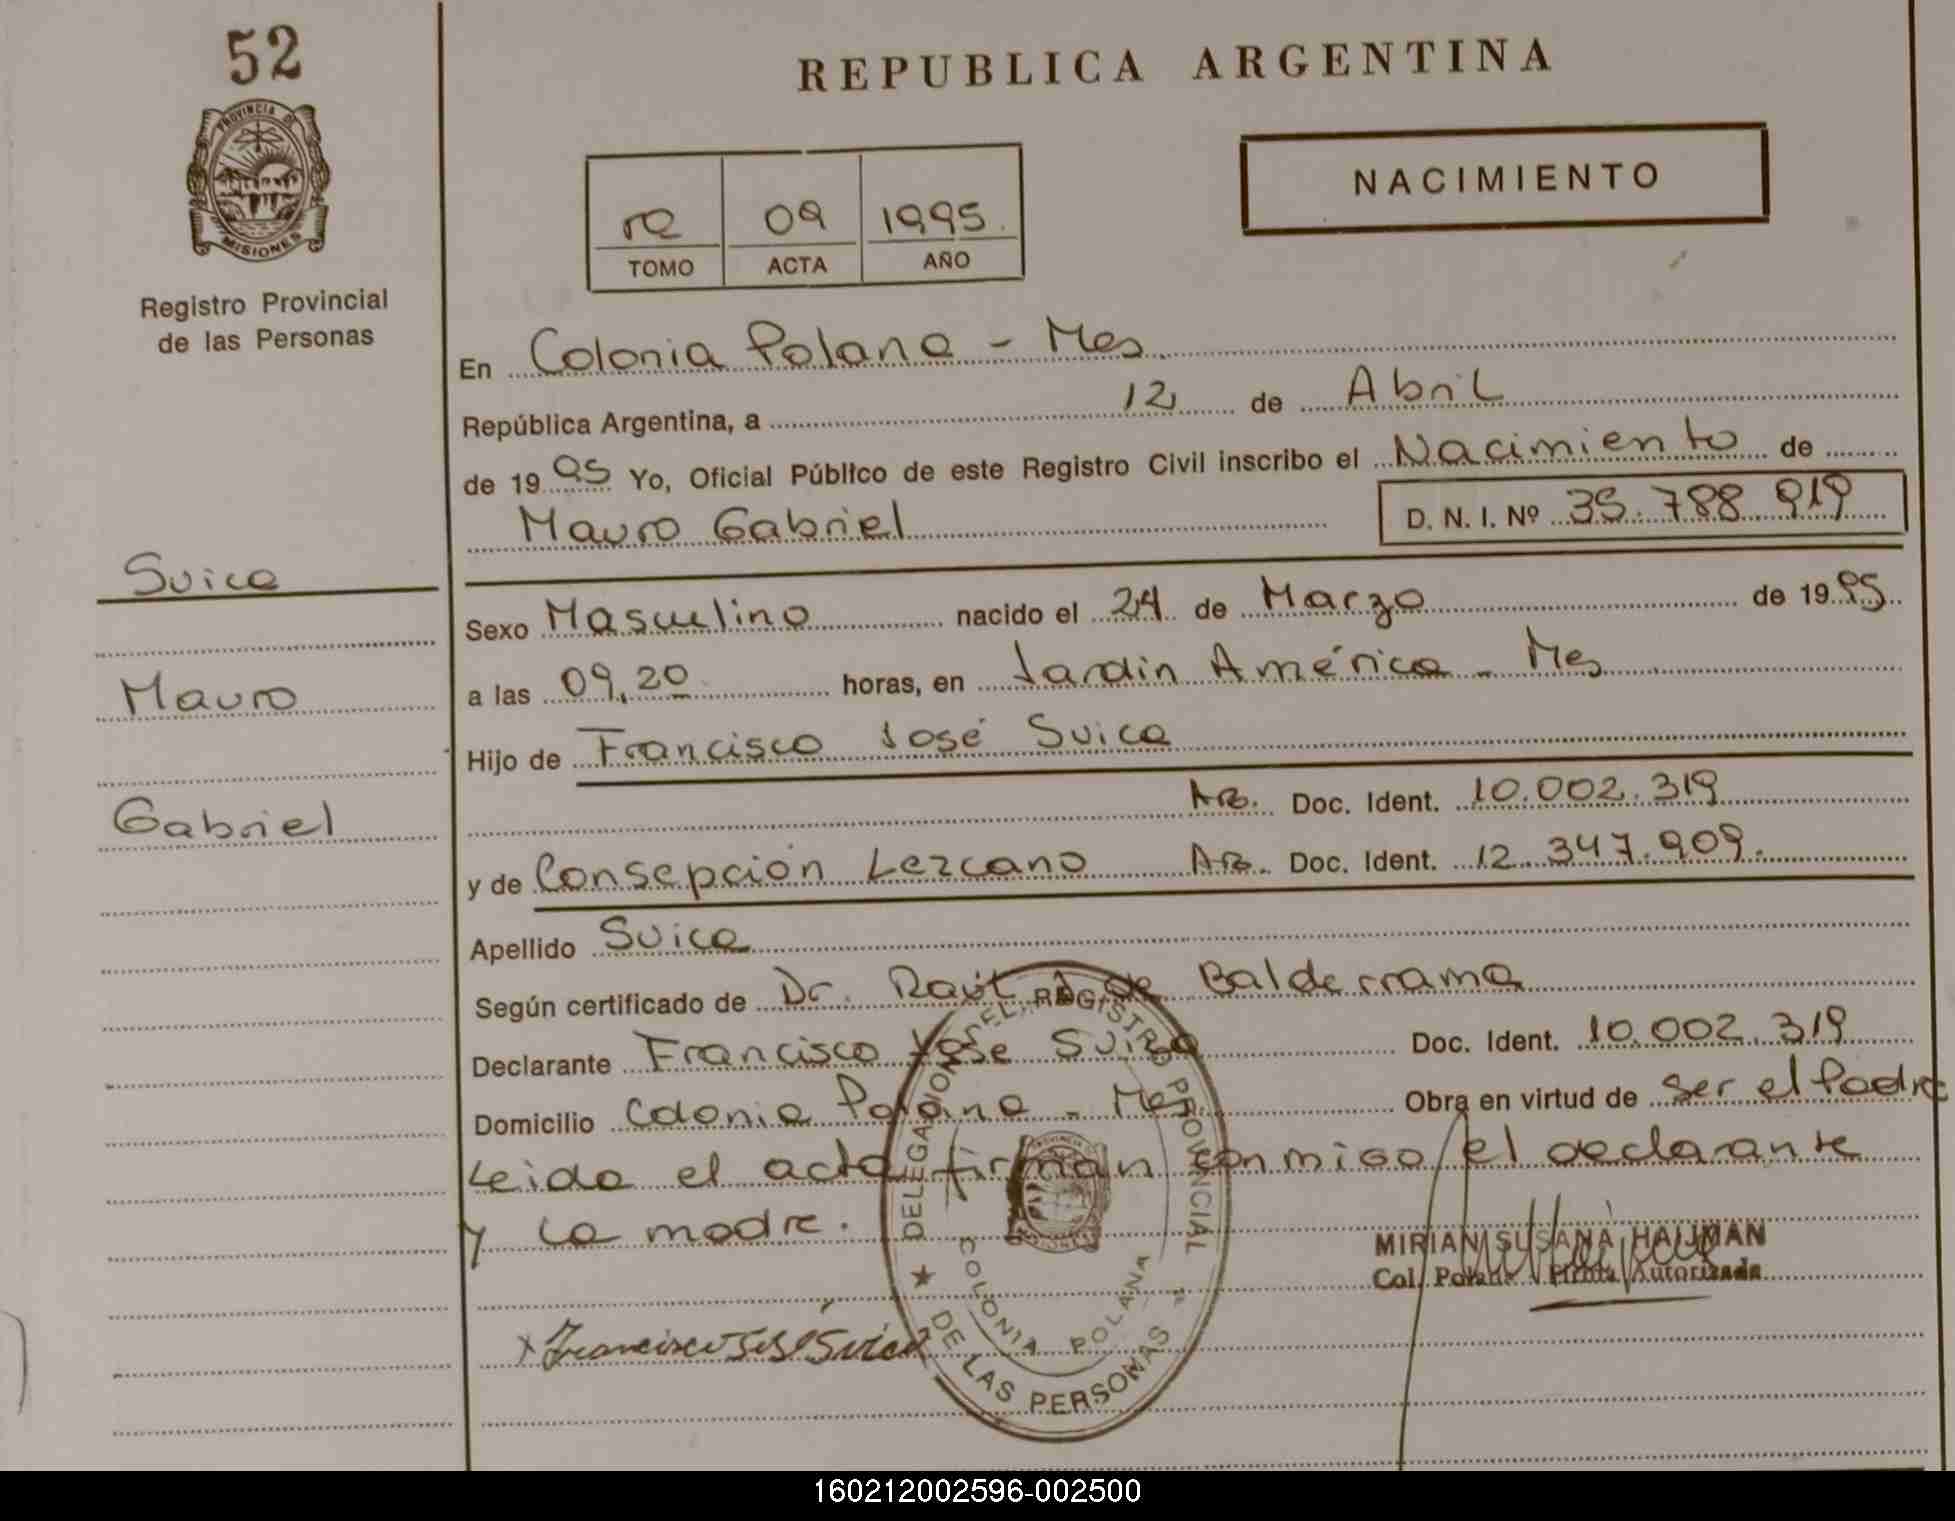 52
PROVINCIA DE
MISIONES
Registro Provincial
de las Personas
REPUBLICA ARGENTINA
NACIMIENTO
09 1995
TOMO ACTA AÑO
En Colonia Polana - Mes
República Argentina, a 12 de Abril
de 1995 Yo, Oficial Público de este Registro Civil inscribo el Nacimiento de
Mauro Gabriel D. N. I. Nº 35.788.919
Suica
Mauro
Gabriel
Sexo Masculino nacido el 24 de Marzo de 1995
a las 09,20 horas, en Jardín América - Mes
Hijo de Francisco José Suica
Doc. Ident. 10.002.319
y de Consepción Lezcano Doc. Ident. 12.347.909.
Apellido Suica
Según certificado de Dr. Raúl de Balderrama
Declarante Francisco José Suica Doc. Ident. 10.002.319
Domicilio Colonia Polana - Mes Obra en virtud de ser el Padre
Leida el acta firman conmigo el declarante
y la madre.
MIRIAN SUSANA HAUMAN
Col. Polana Firma Autorizada
x Francisco José Suica
DELEGACION DEL REGISTRO PROVINCIAL
DE LAS PERSONAS
COLONIA POLANA
160212002596-002500